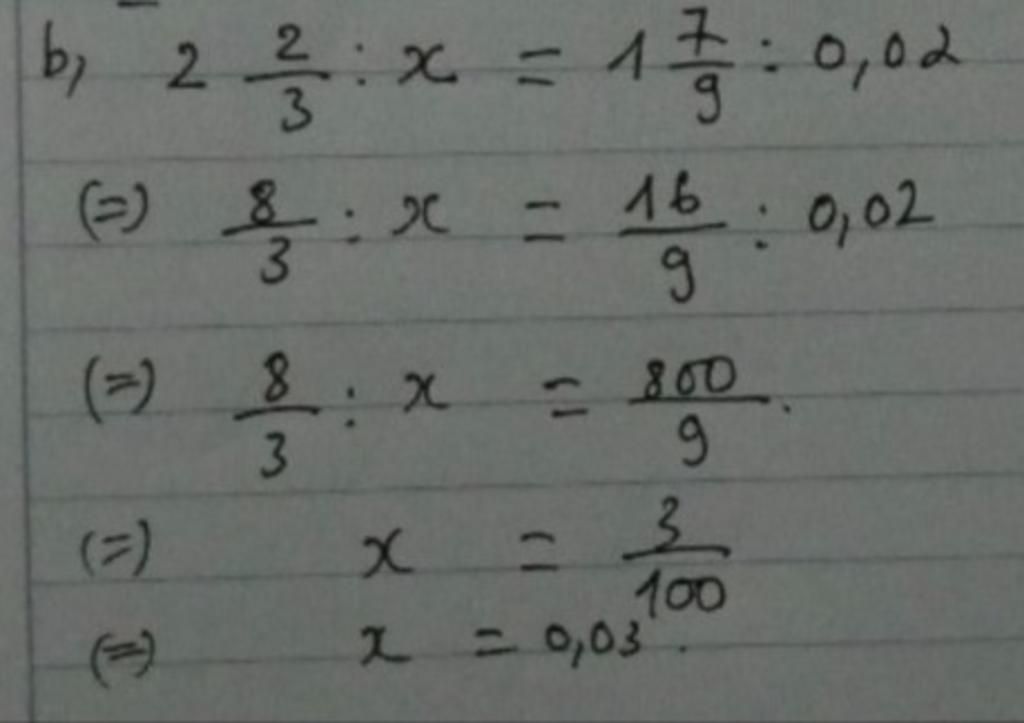 b, 2 2/3 : x = 1 7/9 : 0,02
(=) 8/3 : x = 16/9 : 0,02
(=) 8/3 : x = 800/9.
(=) x = 3/100
(=) x = 0,03.